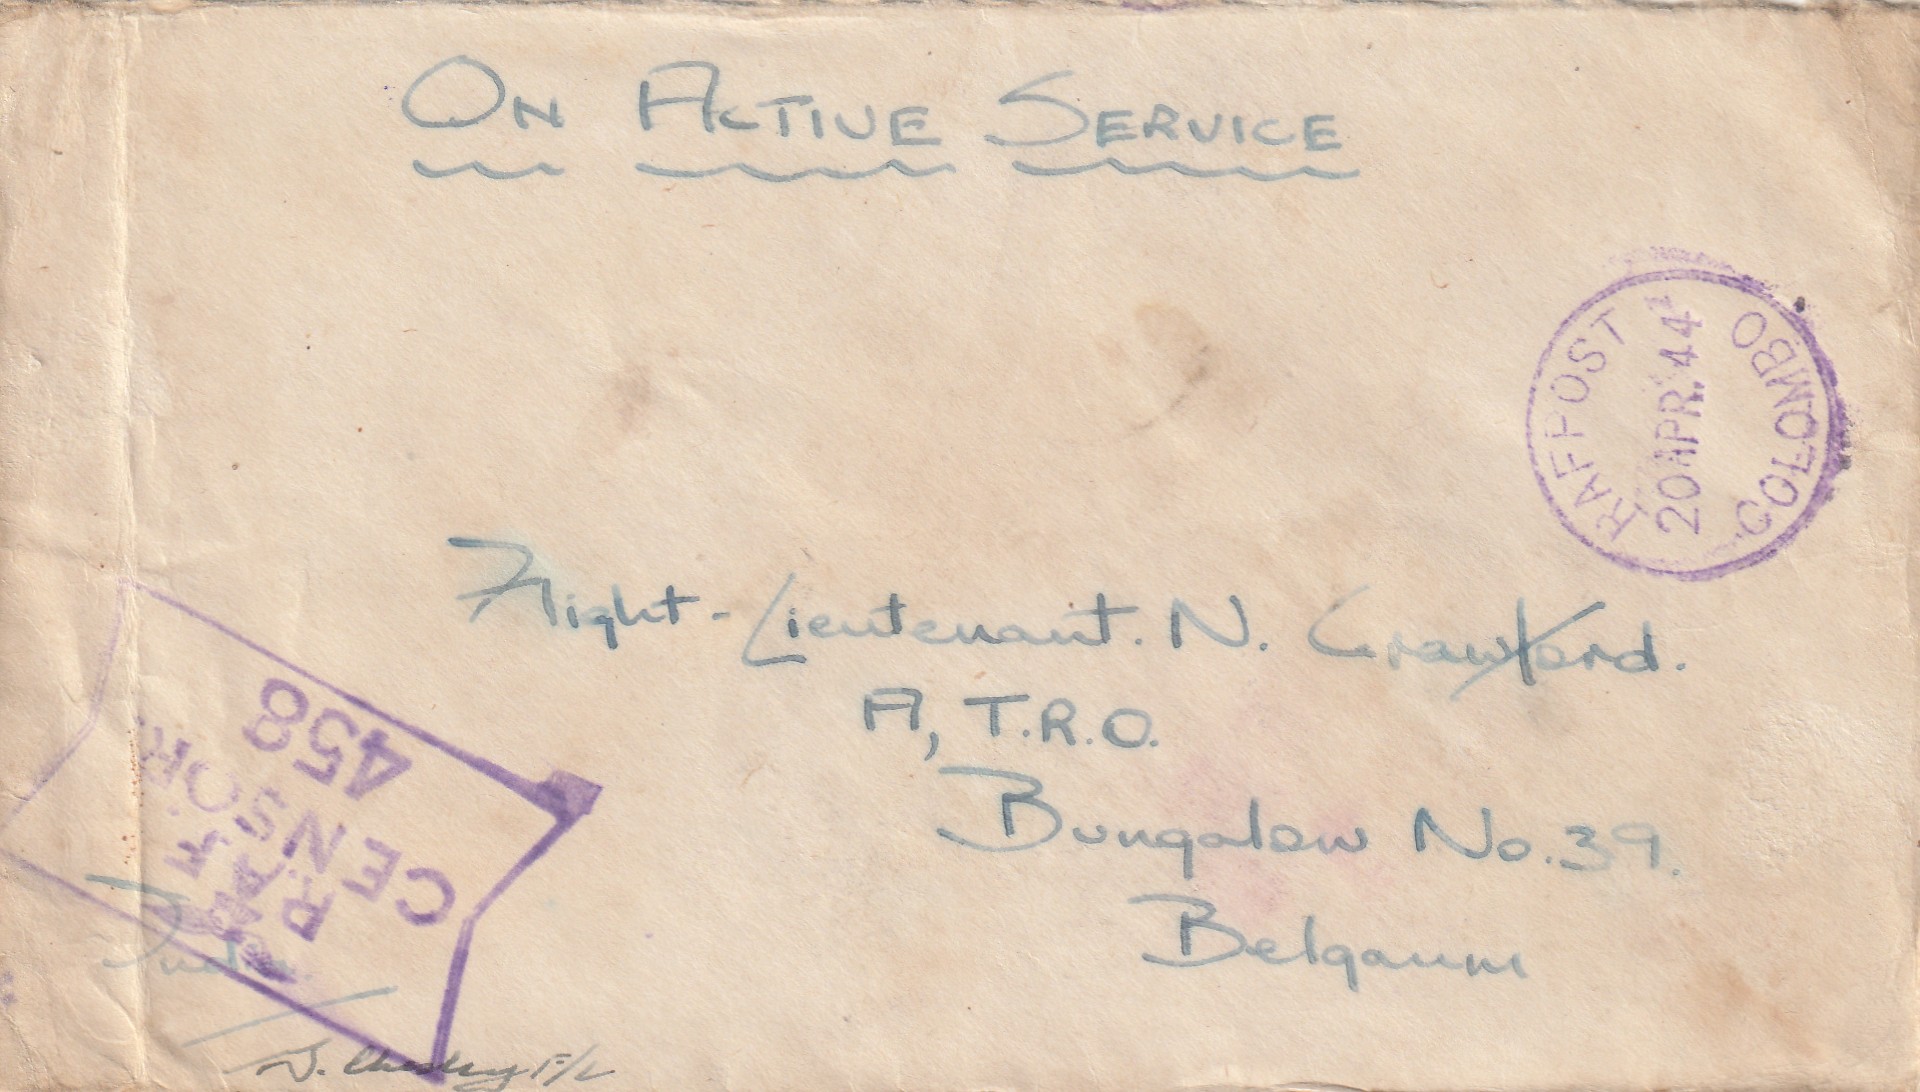 ON ACTIVE SERVICE
RAFPOST
20 APR. 44
COLOMBO
Flight-Lieutenant. N. Crawford.
A, T.R.O.
Bungalow No. 39.
Belgaum
India
R.A.F.
CENSOR
458
F/L